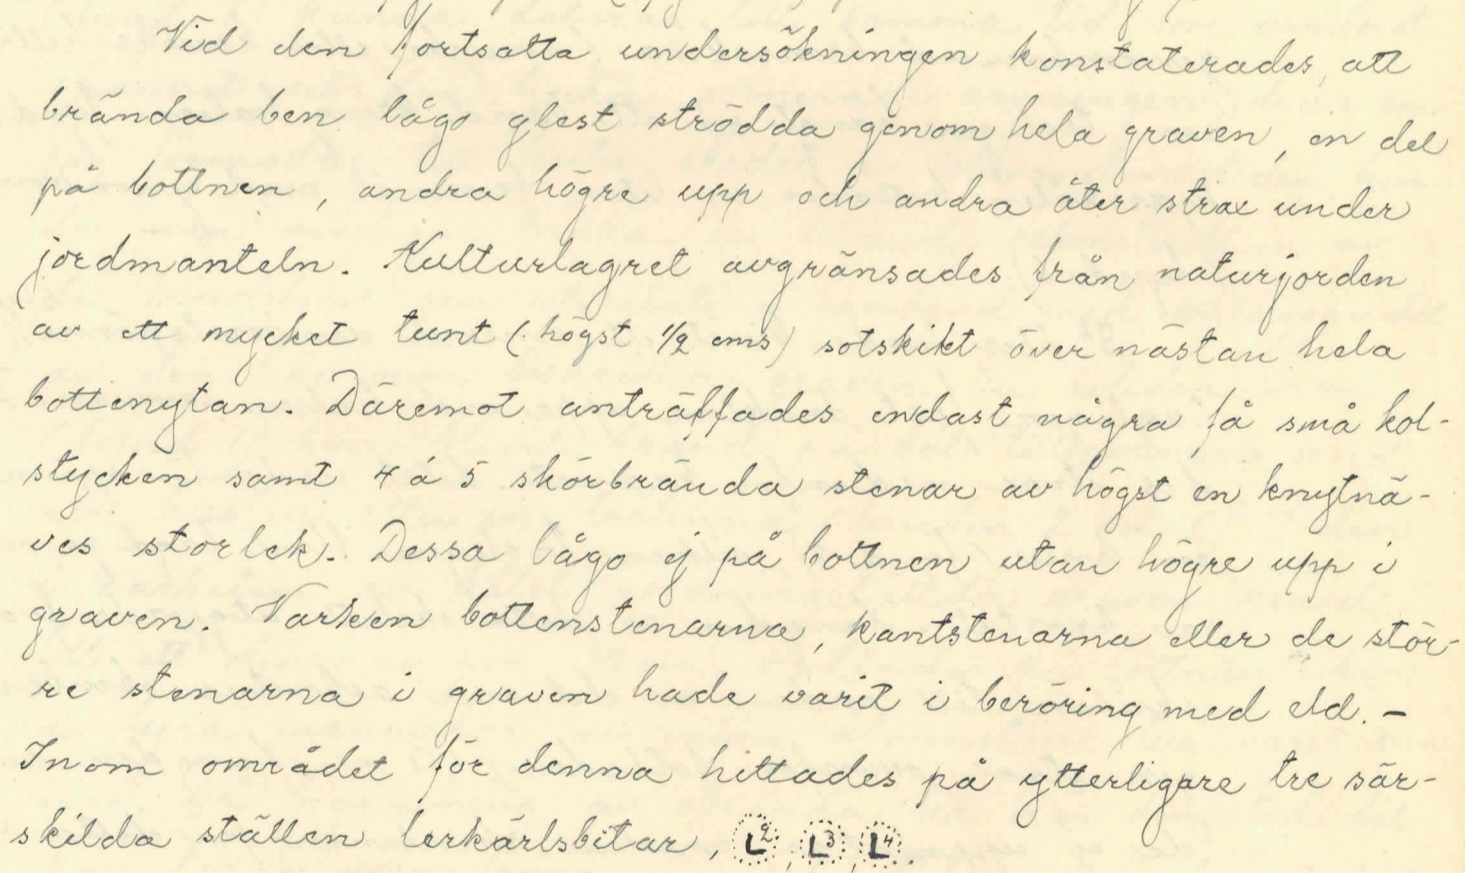 Vid den fortsatta undersökningen konstaterades, att
brända ben lågo glest strödda genom hela graven, en del
på bottnen, andra högre upp och andra åter strax under
jordmanteln. Kulturlagret avgränsades från naturjorden
av ett mycket tunt (högst 1/2 cms) sotskikt över nästan hela
bottenytan. Däremot anträffades endast några få små kol-
stycken samt 4 á 5 skörbrända stenar av högst en knytnä-
ves storlek. Dessa lågo ej på bottnen utan högre upp i
graven. Varken bottenstenarna, kantstenarna eller de stör-
re stenarna i graven hade varit i beröring med eld. –
Inom området för denna hittades på ytterligare tre sär-
skilda ställen lerkärlsbitar, L², L³, L⁴.